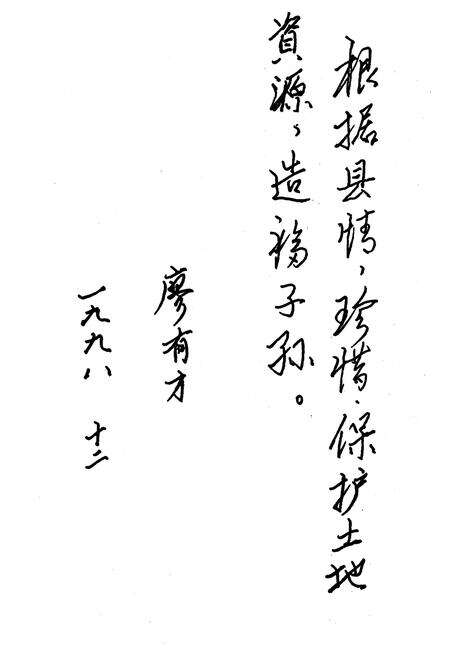 根据县情，珍惜、保护土地
資源，造福子孙。
廖有才
一九九八 十二